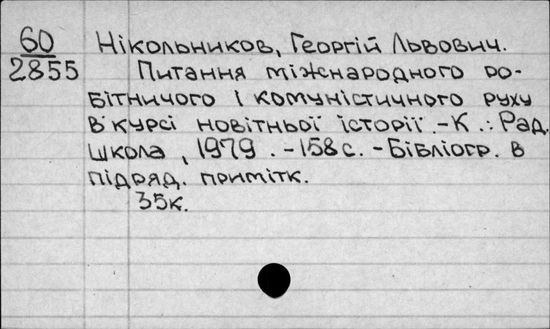 60 Нікольников, Георгій Львович.
2855 Питання міжнародного ро-
бітничого і комуністичного руху
в курсі новітньої історії. - К.: Рад.
школа, 1979. - 158 с. - Бібліогр. в
підряд. примітк.
35к.